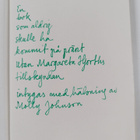 En
bok
som aldrig
skulle ha
kommit på pränt
utan Margareta Hjorths
tillskyndan
inbygges med hälsning av
Molly Johnson